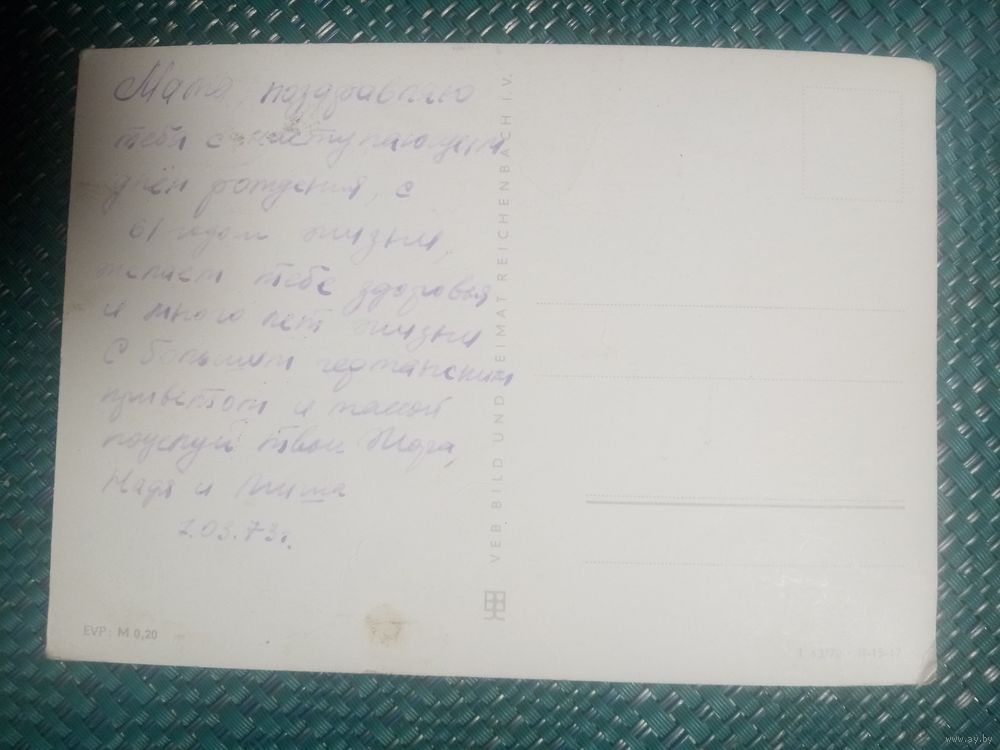 Мама, поздравляю
тебя с наступающим
днём рождения, с
61 годом жизни,
желаем тебе здоровья
и много лет жизни
С большим германским
приветом и массой
поцелуй твои Жора,
Надя и Миша
7.03.73г.
EVP: M 0,20
VEB BILD UND HEIMAT REICHENBACH I. V.
www.ay.by